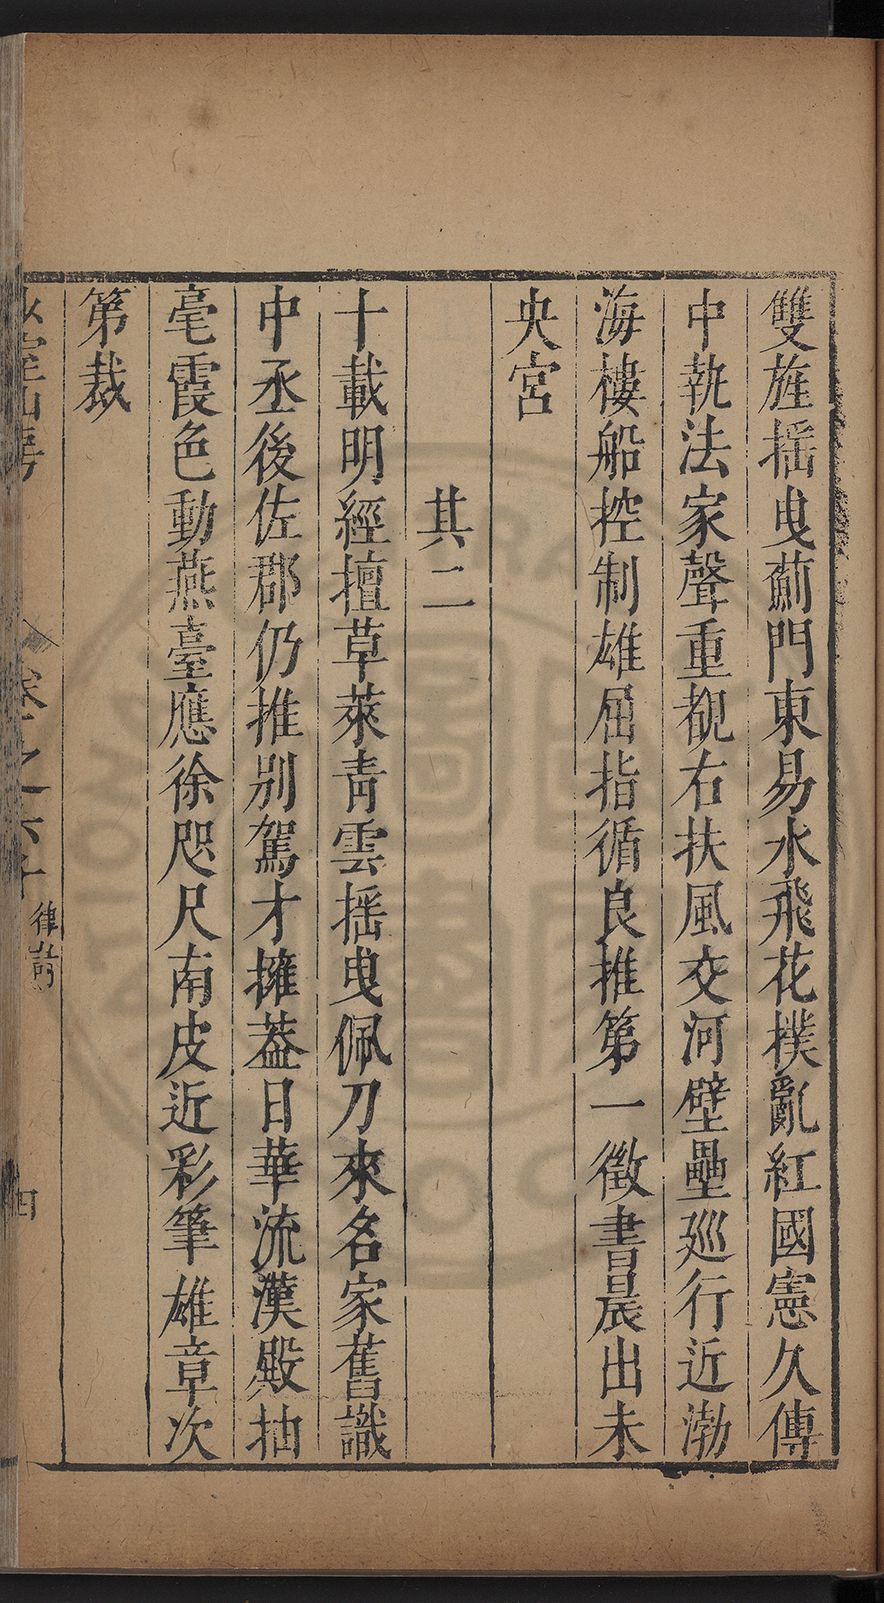 雙旌揺曳薊門東易水飛花撲亂紅國憲久傳
中執法家聲重覩右扶風交河壁壘廵行近渤
海樓船控制雄屈指循良推第一徴書晨出未
央宮
其二
十載明經擅草萊靑雲揺曳佩刀來名家舊識
中丞後佐郡仍推别駕才擁葢日華流漢殿抽
毫霞色動燕臺應徐咫尺南皮近彩筆雄章次
第裁
卷之六十 律詩
四